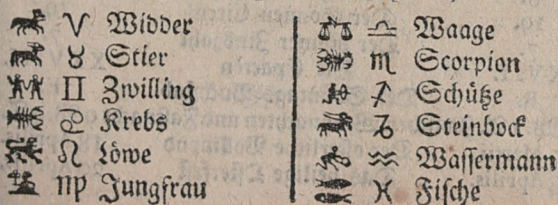 ♈ Widder
♉ Stier
♊ Zwilling
♋ Krebs
♌ Löwe
♍ Jungfrau
♎ Waage
♏ Scorpion
♐ Schütze
♑ Steinbock
♒ Wassermann
♓ Fische